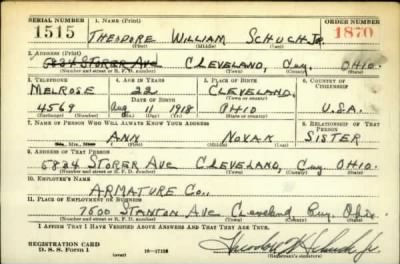 SERIAL NUMBER 1. NAME (Print) ORDER NUMBER
1515 THEODORE WILLIAM SCHUCH JR. 1870
(First) (Middle) (Last)
2. ADDRESS (Print)
5834 STORER AVE CLEVELAND, Cuy. OHIO.
(Number and street or R. F. D. number) (Town) (County) (State)
3. TELEPHONE 4. AGE IN YEARS 5. PLACE OF BIRTH 6. COUNTRY OF CITIZENSHIP
MELROSE 22 CLEVELAND,
DATE OF BIRTH (Town or county)
4569 Aug 11 1918 OHIO U.S.A.
(Exchange) (Number) (Mo.) (Day) (Yr.) (State or country)
7. NAME OF PERSON WHO WILL ALWAYS KNOW YOUR ADDRESS 8. RELATIONSHIP OF THAT PERSON
ANN NOVAK SISTER
(Mr., Mrs., Miss) (First) (Middle) (Last)
9. ADDRESS OF THAT PERSON
5834 STORER AVE CLEVELAND, Cuy OHIO.
(Number and street or R. F. D. number) (Town) (County) (State)
10. EMPLOYER'S NAME
ARMATURE CO.,
11. PLACE OF EMPLOYMENT OR BUSINESS
7600 STANTON AVE Cleveland Cuy. Ohio.
(Number and street or R. F. D. number) (Town) (County) (State)
I AFFIRM THAT I HAVE VERIFIED ABOVE ANSWERS AND THAT THEY ARE TRUE.
REGISTRATION CARD
D. S. S. Form 1 (over) 16—17105 Theodore W Schuch Jr.
(Registrant's signature)